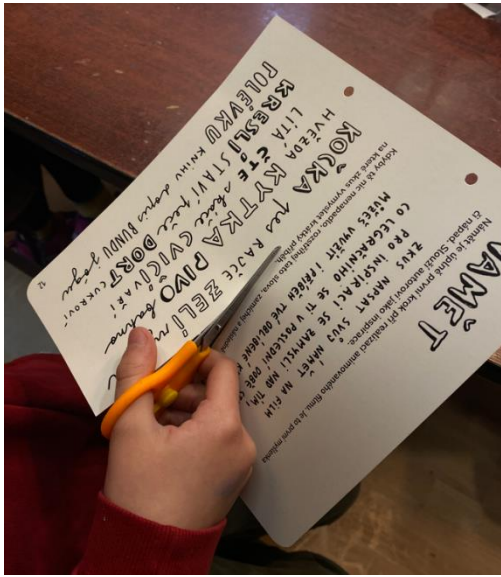 NÁMĚT
Námět je úplně první krok při realizaci animovaného filmu. Je to první myšlenka
či nápad. Slouží autorovi jako inspirace.
ZKUS NAPSAT SVŮJ NÁMĚT NA FILM
PRO INSPIRACI SE ZAMYSLI NAD TÍM,
CO LEGRAČNÍHO SE TI V POSLEDNÍ DOBĚ
MŮŽEŠ VYUŽÍT I PŘÍBĚH TVÉ OBLÍBENÉ
Kdyby tě nic nenapadlo, rozstříhej tato slova, zamíchej a
na které zkus vymyslet krátký příběh.
KOČKA pes RAJČE ZELÍ
HVĚZDA KYTKA PIVO
LÍTÁ ČTE skáče CVIČÍ VAŘÍ
KRESLÍ STAVÍ peče DORT CUKROVÍ
POLÉVKU KNIHU dopis BUNDU jógu
12